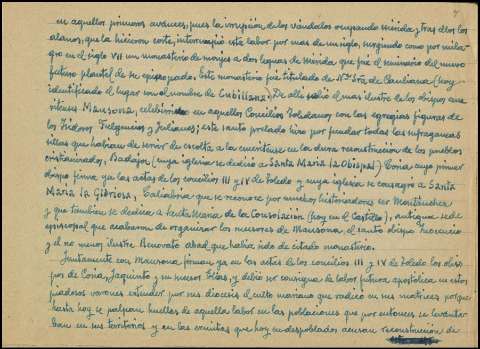 en aquellos primeros avances, pues la irrupción de los vándalos ocupando Mérida y tras ellos los
alanos, que la hicieron corte, interrumpió esta labor por mas de un siglo, surgiendo como por mila-
gro en el siglo VII un monasterio de monjes a dos leguas de Mérida que fue el seminario del nuevo
futuro plantel de su episcopado. Este monasterio fué titulado de Nª Srª de Cauliana (hoy
identificado el lugar con el nombre de Cubillana. De alli salió el mas ilustre de los obispos eme-
ritenses Mausona, celebérrimo en aquellos Concilios Toledanos con las egregias figuras de
los Isidoros Fulgencios y Julianes; este santo prelado hizo por fundar todas las sufraganeas
sillas que habian de servir de escolta a la emeritense en la dura reconstruccion de los pueblos
cristianizados, Badajoz (cuya iglesia se dedicó a Santa Maria la Obispal) Coria cuyo primer
obispo firma ya las actas de los concilios III y IV de Toledo y cuya iglesia se consagro a Santa
Maria la Gloriosa, Caliabria que se reconoce por muchos historiadores ser Montanchez
y que tambien se dedica a Santa Maria de la Consolacion (hoy en el Castillo), antigua sede
episcopal que acabaron de organizar los sucesores de Mausona, el santo obispo Inocencio
y el no menor ilustre Renovato abad que habia sido de estado monasterio.
Juntamente con Mausona firman ya en las actas de los concilios III y IV de Toledo los obis-
pos de Coria, Jaquinto y su sucesor Elias, y debió ser consigna de labor futura apostolica en estos
piadosos varones extender por sus diocesis el culto mariano que radicó en sus matrices porque
hasta hoy se palpan huellas de aquella labor en las poblaciones que por entonces se levanta-
ban en sus territorios y en las ermitas que hoy en despoblados acusan reconstruccion de